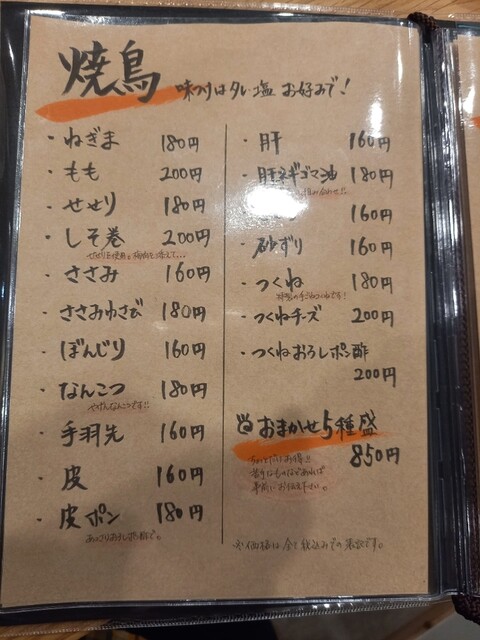 焼鳥 味つけはタレ・塩 お好みで!
・ねぎま 180円
・もも 200円
・せせり 180円
・しそ巻 200円
・ささみ 160円
・ささみわさび 180円
・ぼんじり 160円
・なんこつ 180円
やげんなんこつです!!
・手羽先 160円
・皮 160円
・皮ポン 180円
あっさりおろしポン酢で。
・肝 160円
・肝ネギゴマ油 180円
160円
・砂ずり 160円
・つくね 180円
特製の手ごねつくねです!
・つくねチーズ 200円
・つくねおろしポン酢
200円
おまかせ5種盛
850円
ちょっとだけお得!!
苦手なものなどあれば
事前にお伝え下さい。
※価格は全て税込みでの表記です。